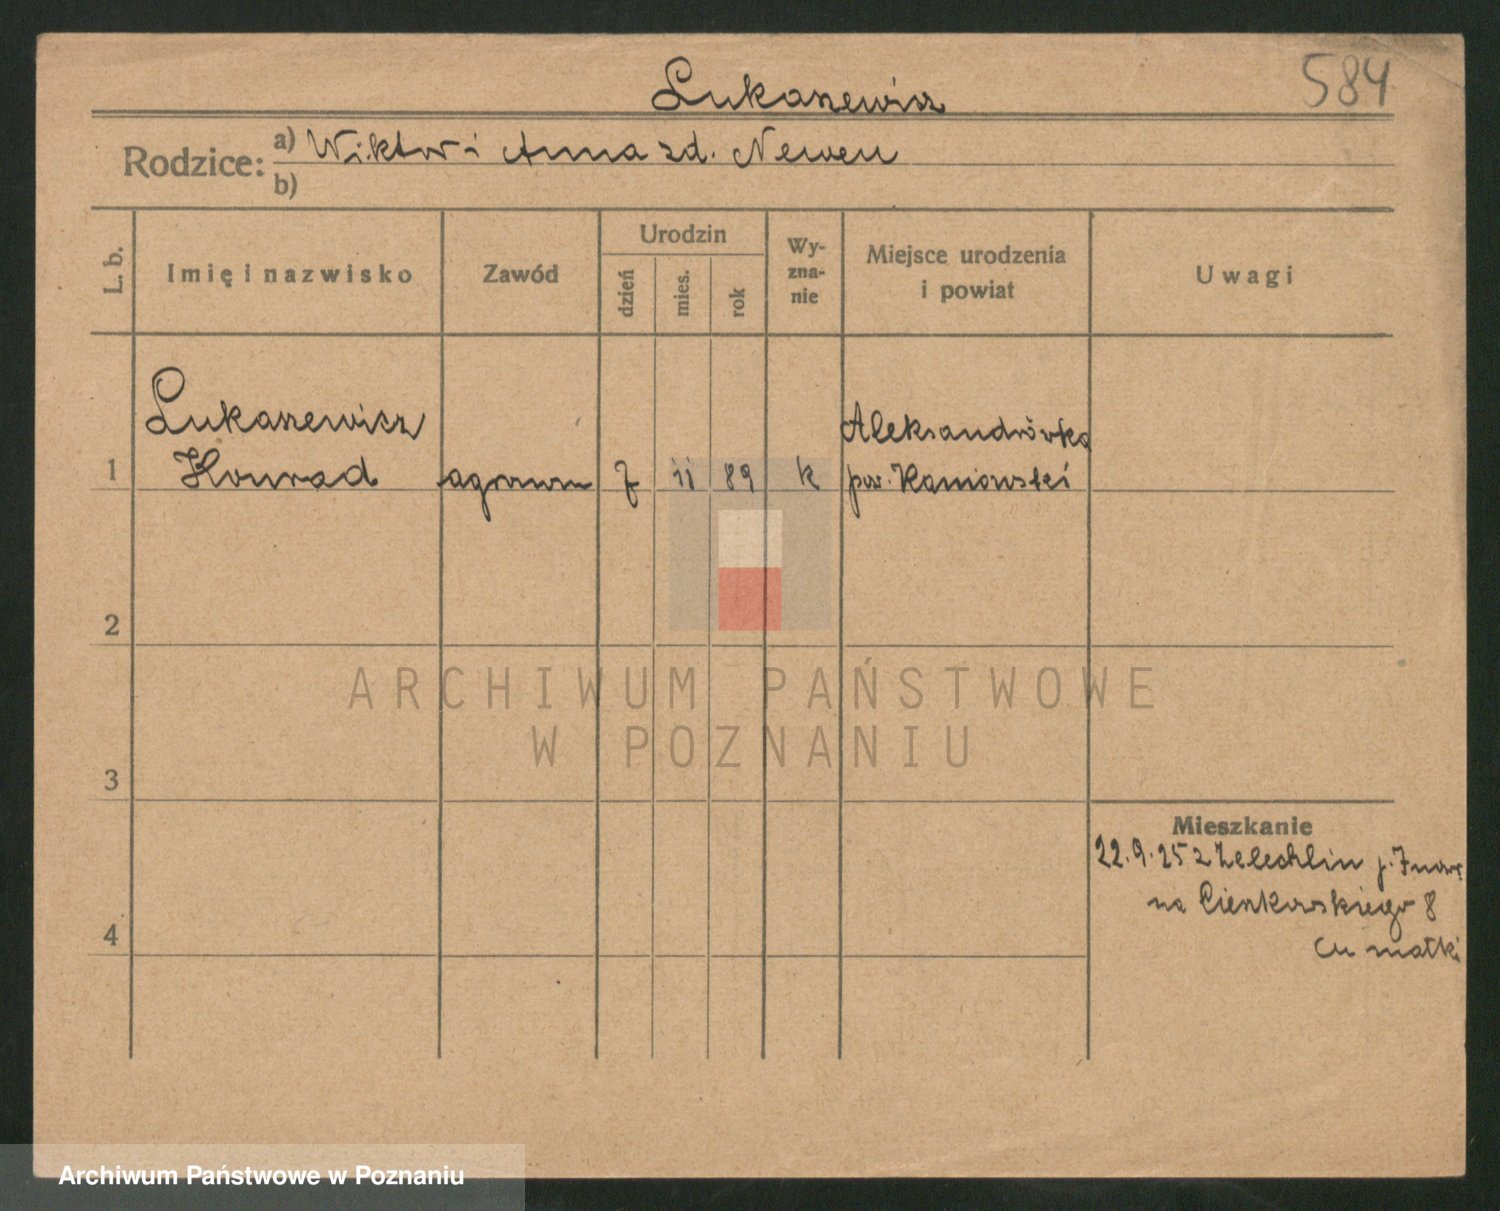 Łukaszewicz
584
Rodzice: a) Wiktor i Anna zd. Newen
b)
L. b.
Imię i nazwisko
Zawód
Urodzin
dzień
mies.
rok
Wy-
zna-
nie
Miejsce urodzenia
i powiat
Uwagi
1
Łukaszewicz
Konrad
agronom
7
11
89
k
Aleksandrówka
pow. Kaniowski
2
3
4
Mieszkanie
22.9.25 z Żelechlin p. Inowr
na Cienkowskiego 8
u matki
ARCHIWUM PAŃSTWOWE
W POZNANIU
Archiwum Państwowe w Poznaniu